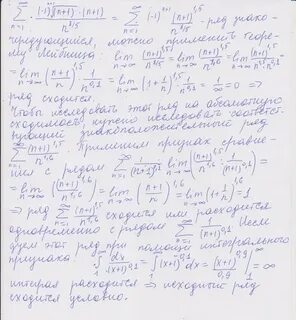 ∑_{n=1}^∞ (-1)^n √(n+1)·(n+1)/n^{8/5} = ∑_{n=1}^∞ (-1)^n (n+1)^{1,5}/n^{1,6} - ряд знако-
чередующийся, можно применить теоре-
му Лейбница: lim_{n→∞} (n+1)^{1,5}/n^{1,6} = lim_{n→∞} (n+1)^{1,5}/(n^{1,5}·n^{0,1}) =
= lim_{n→∞} ((n+1)/n)^{1,5}·1/n^{0,1} = lim_{n→∞} (1+1/n)^{1,5}·1/n^{0,1} = 1/∞ = 0 ⇒
ряд сходится.
Чтобы исследовать этот ряд на абсолютную
сходимость, нужно исследовать соответст-
вующий знакоположительный ряд
∑_{n=1}^∞ (n+1)^{1,5}/n^{1,6}. Применим признак сравне-
ния с рядом ∑_{n=1}^∞ 1/(n+1)^{0,1}: lim_{n→∞} ((n+1)^{1,5}/n^{1,6} : 1/(n+1)^{0,1}) =
= lim_{n→∞} (n+1)^{1,6}/n^{1,6} = lim_{n→∞} ((n+1)/n)^{1,6} = lim_{n→∞} (1+1/n)^{1,6} = 1
⇒ ряд ∑_{n=1}^∞ (n+1)^{1,5}/n^{1,6} сходится или расходится
одновременно с рядом ∑_{n=1}^∞ 1/(n+1)^{0,1}. Иссле
дуем этот ряд при помощи интегрального
признака: ∫_1^∞ dx/(x+1)^{0,1} = ∫_1^∞ (x+1)^{-0,1} dx = (x+1)^{0,9}/0,9 |_1^∞ = ∞
интеграл расходится ⇒ исходный ряд
сходится условно.